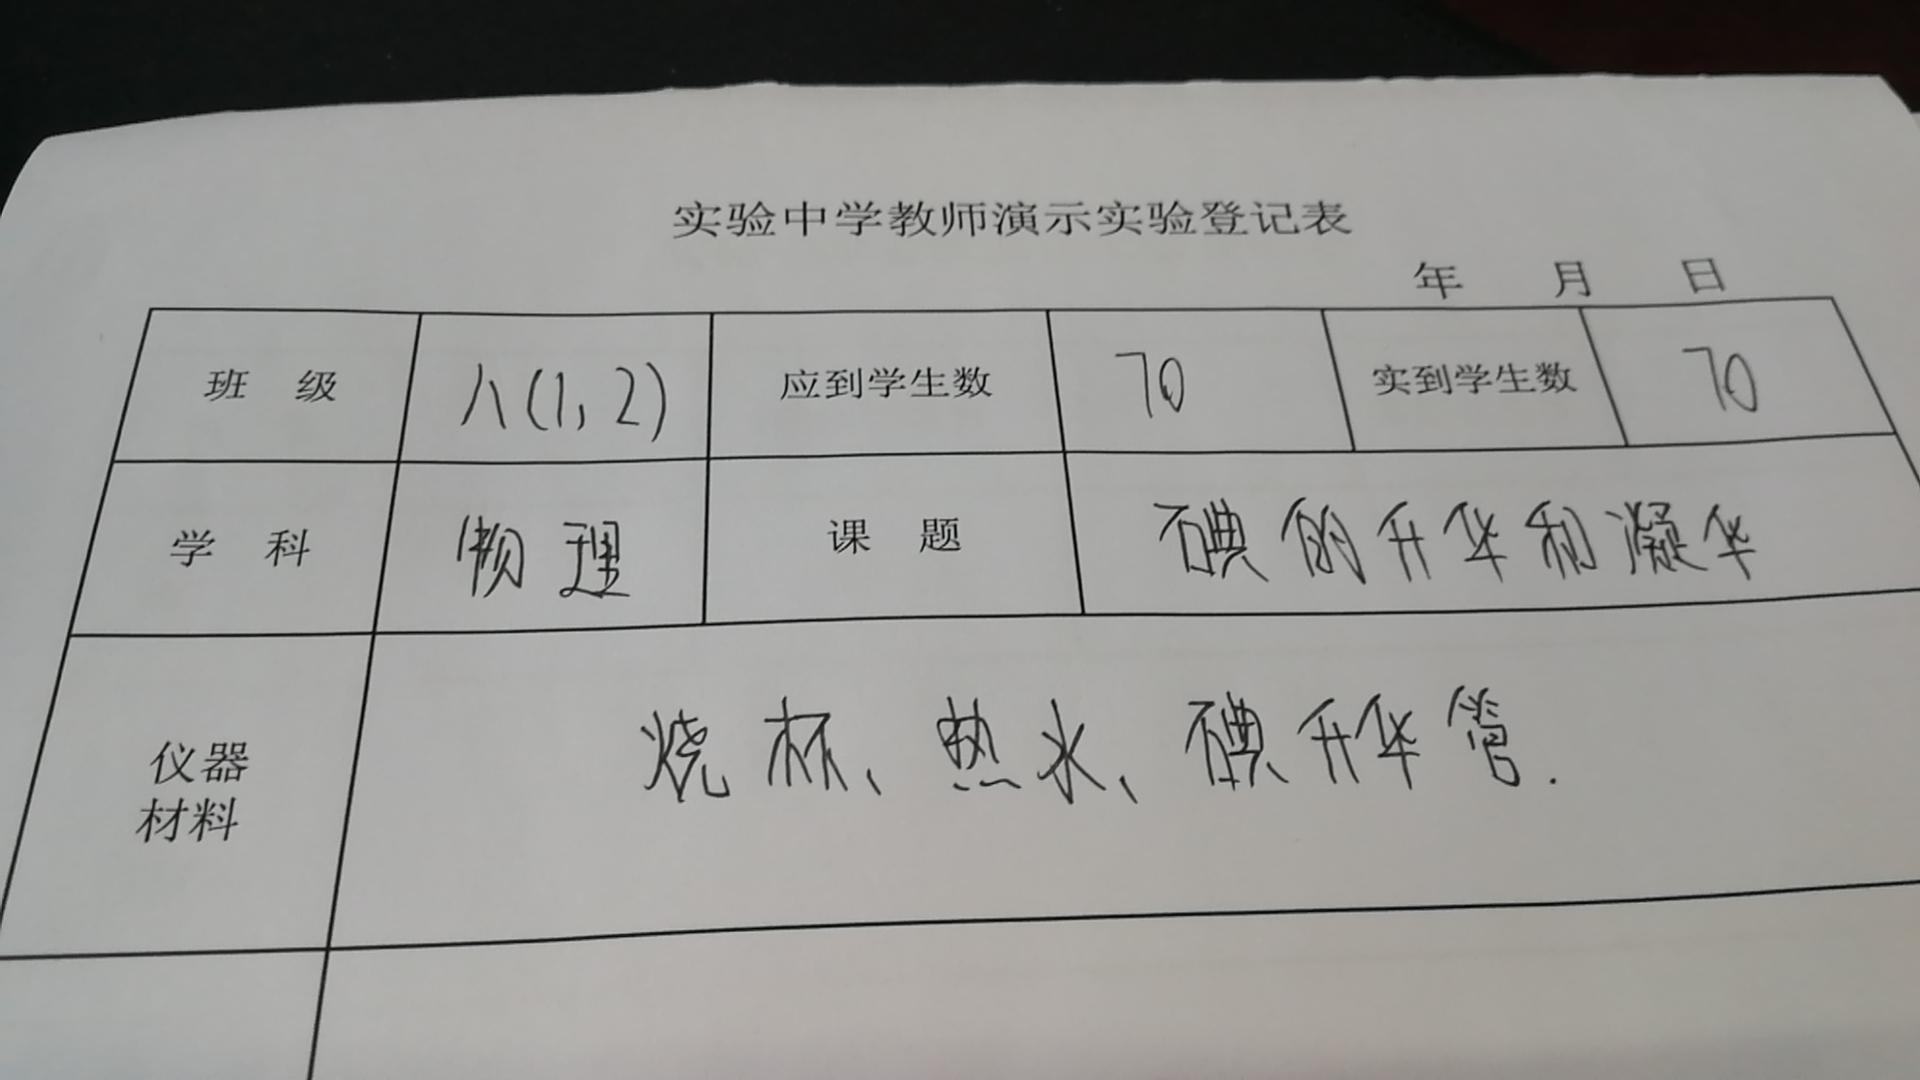 实验中学教师演示实验登记表
年 月 日
班 级 八(1,2) 应到学生数 70 实到学生数 70
学 科 物理 课 题 碘的升华和凝华
仪器
材料
烧杯、热水、碘升华管.